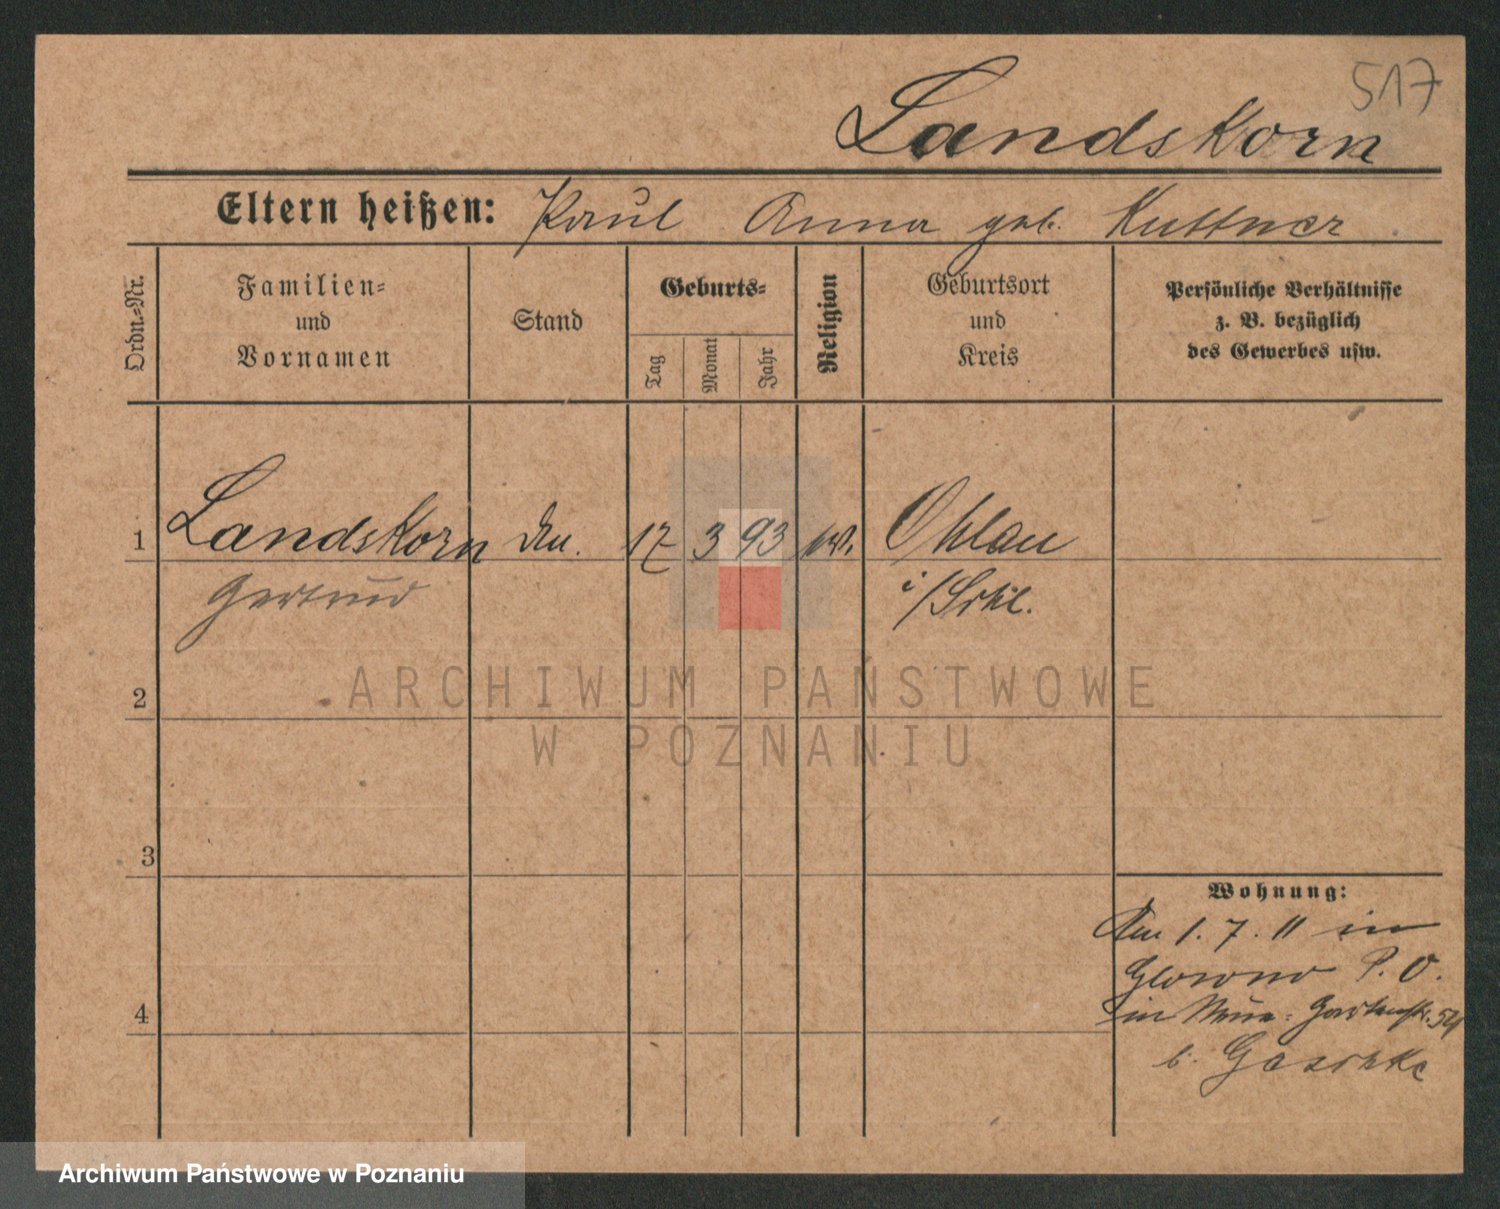 517
Landskorn
Eltern heißen: Paul Anna geb. Kuttner
Ordn.=Nr.
Familien=
und
Vornamen
Stand
Geburts=
Tag
Monat
Jahr
Religion
Geburtsort
und
Kreis
Persönliche Verhältnisse
z. B. bezüglich
des Gewerbes usw.
1 Landskorn 17 3 93 Ohlau
Gertrud i/Schl.
2
3
4
Wohnung:
1. 7. 11 in
Glowno P. O.
in Gartenstr. 54
b. Gaschke
ARCHIWUM PAŃSTWOWE
W POZNANIU
Archiwum Państwowe w Poznaniu